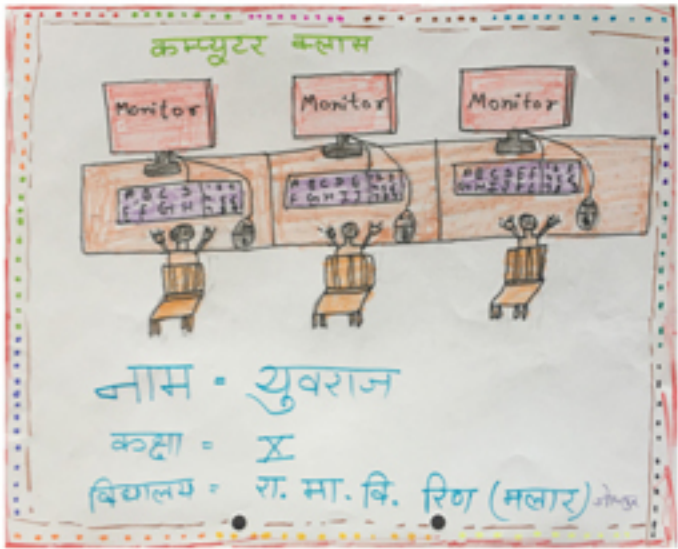 कम्प्यूटर क्लास
Monitor Monitor Monitor
A B C D
E F G H
A B C D E
F G H I J
नाम - युवराज
कक्षा = X
विद्यालय = रा. मा. वि. रिण (मलार)